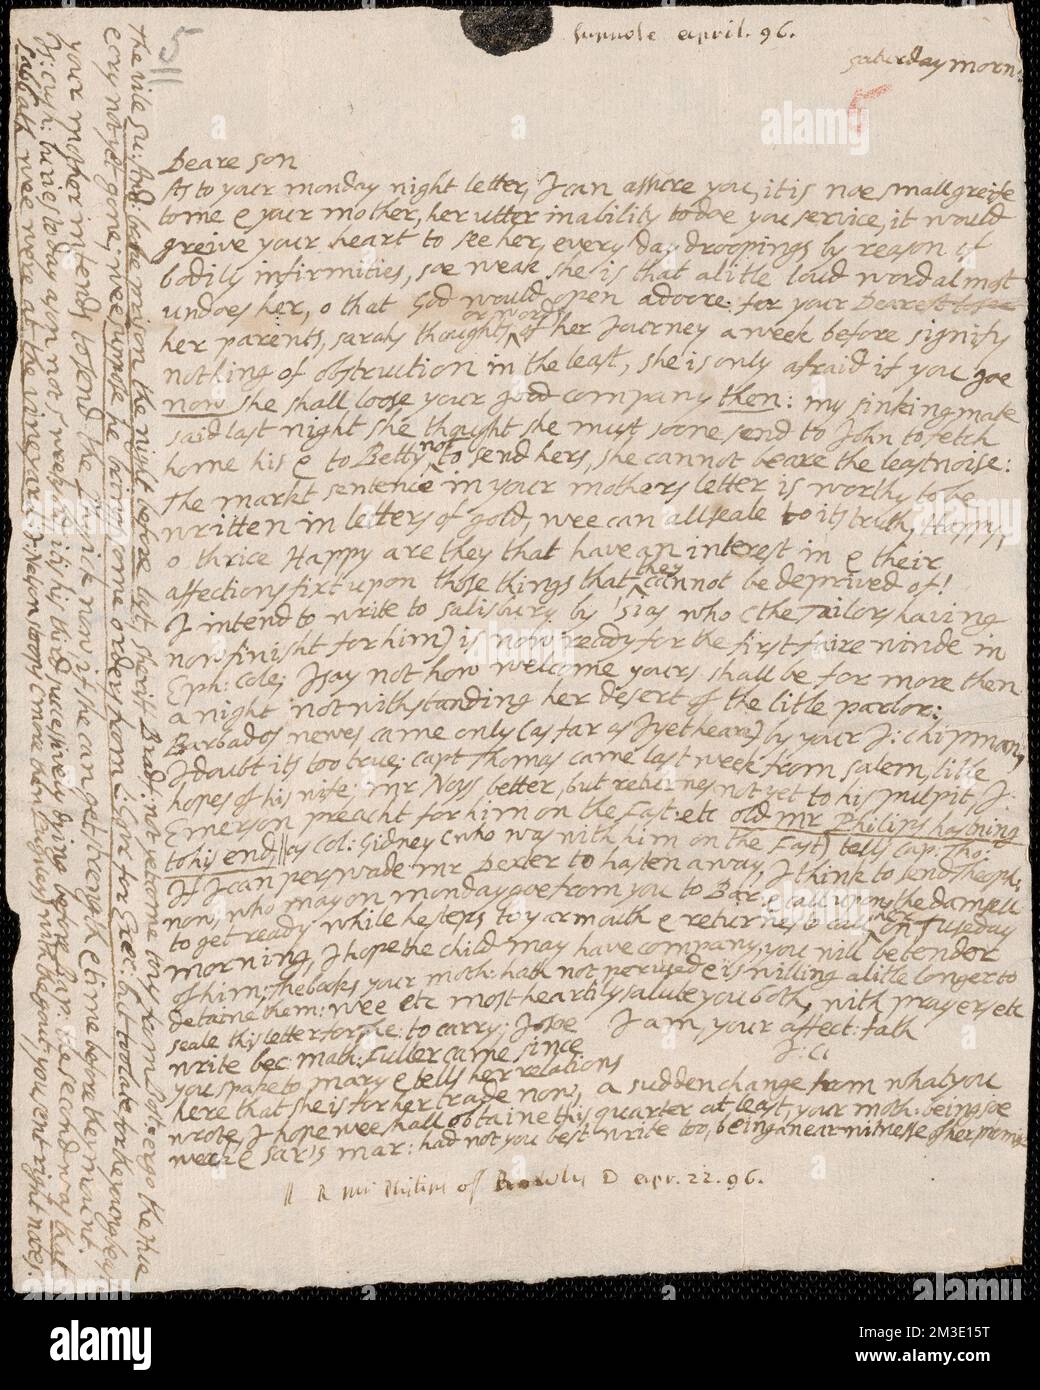 Suppose april. 96.
saturday morn:
5
5
Deare son
As to your monday night letter, I can assure you, it is noe small greife
to me & your mother, her utter inability to doe you service, it would
greive your heart to see her, every day droopings by reason of
bodily infirmities, soe weak she is that a litle loud word almost
undoes her, o that God would open adoore for your Dearest
or words
her parents, sarahs thoughts of her Journey a week before signify
nothing of obstruction in the least, she is only afraid if you goe
now she shall loose your good company then: my sinking make
said last night she thought she must soone send to John to fetch
not
home his & to Betty to send hers, she cannot beare the least noise:
The markt sentence in your mothers letter is worthy to be
written in letters of gold, wee can all seale to its truth, Happy,
o thrice Happy are they that have an interest in & their
they
affections fixt upon those things that cannot be deprived of!
I intend to write to salisbury by who (the Tailors having
now finisht for him) is now ready for the first faire winde in
Eph: Cole; I say not how welcome yours shall be for more then
a night notwithstanding her desert of the litle parlor:
Barbados newes came only (as far as I yet heare) by your J: Chipman,
I doubt its too true; capt Thomas came last week from Salem, litle
hopes of his wife; mr Noys better, but returnes not yet to his pulpit, J.
Emerson preacht for him on the Fast: etc old mr Philips hastning
to his end, as Col: Gidney (who was with him on the Fast) tells cap: Tho:
If I can perswade mr Dexter to hasten away, I think to send Theoph:
now, who may on monday goe from you to Bar: & call upon the damsell
to get ready while he steps to yarmouth & returne & call her on Tuseday
morning, I hope the child may have company, you will be tender
of him; The books your moth: hath not perused & is willing a litle longer to
detaine them: wee etc most heartily salute you both, with prayers etc
seale this letter for The: to carry; I soe I am, your affect: fath
write bec: math: Fuller came since J: C:
you spake to mary & tells her relations
here that she is for her trade now, a sudden change from what you
wrote, I hope wee shall obtaine this quarter at least, your moth: being soe
weake & sarahs mar: had not you best write too, being a near witnesse of her promise
R mr Philips of Rowly D apr. 22. 96.
The vile Su: And: broke prison the night before last, sheriff Brad: not yet come my from Bost: ergo the shire
& cry not yet gone, wee suppose he brings some orders from L: Gov: for Exec: but too late for the young
your mother intends to send the pick now if she can get therewith & time before the maint.
Dr: Cush: buried to day a son not 3 weeks old, its his third successively dying before Bap: the second was that
Sabbath wee were at the vineyard: J: Nelson stoops & more then Bigness with the gout, you sent right nowes.